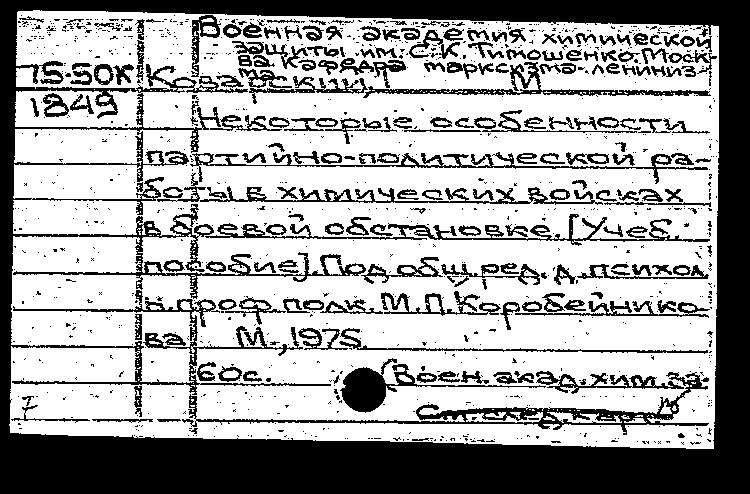 Военная академия химической
защиты им. С.К. Тимошенко. Моск-
ва. Кафедра марксизма-лениниз-
ма
75-50К Коварский, М
1849
Некоторые особенности
партийно-политической ра-
боты в химических войсках
в боевой обстановке. [Учеб.
пособие]. Под общ. ред. д. психол
н. проф. полк. М.П. Коробейнико
ва М., 1975.
60с. (Воен. акад. хим. за-
См. след. карт.
7